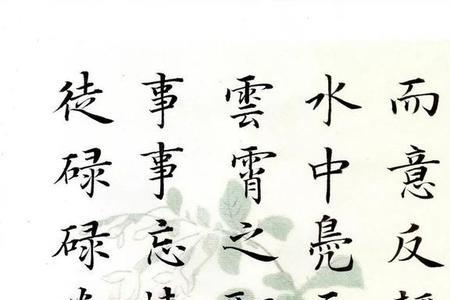 而意反
水中鳧
雲霄之
事事忘
徒碌碌